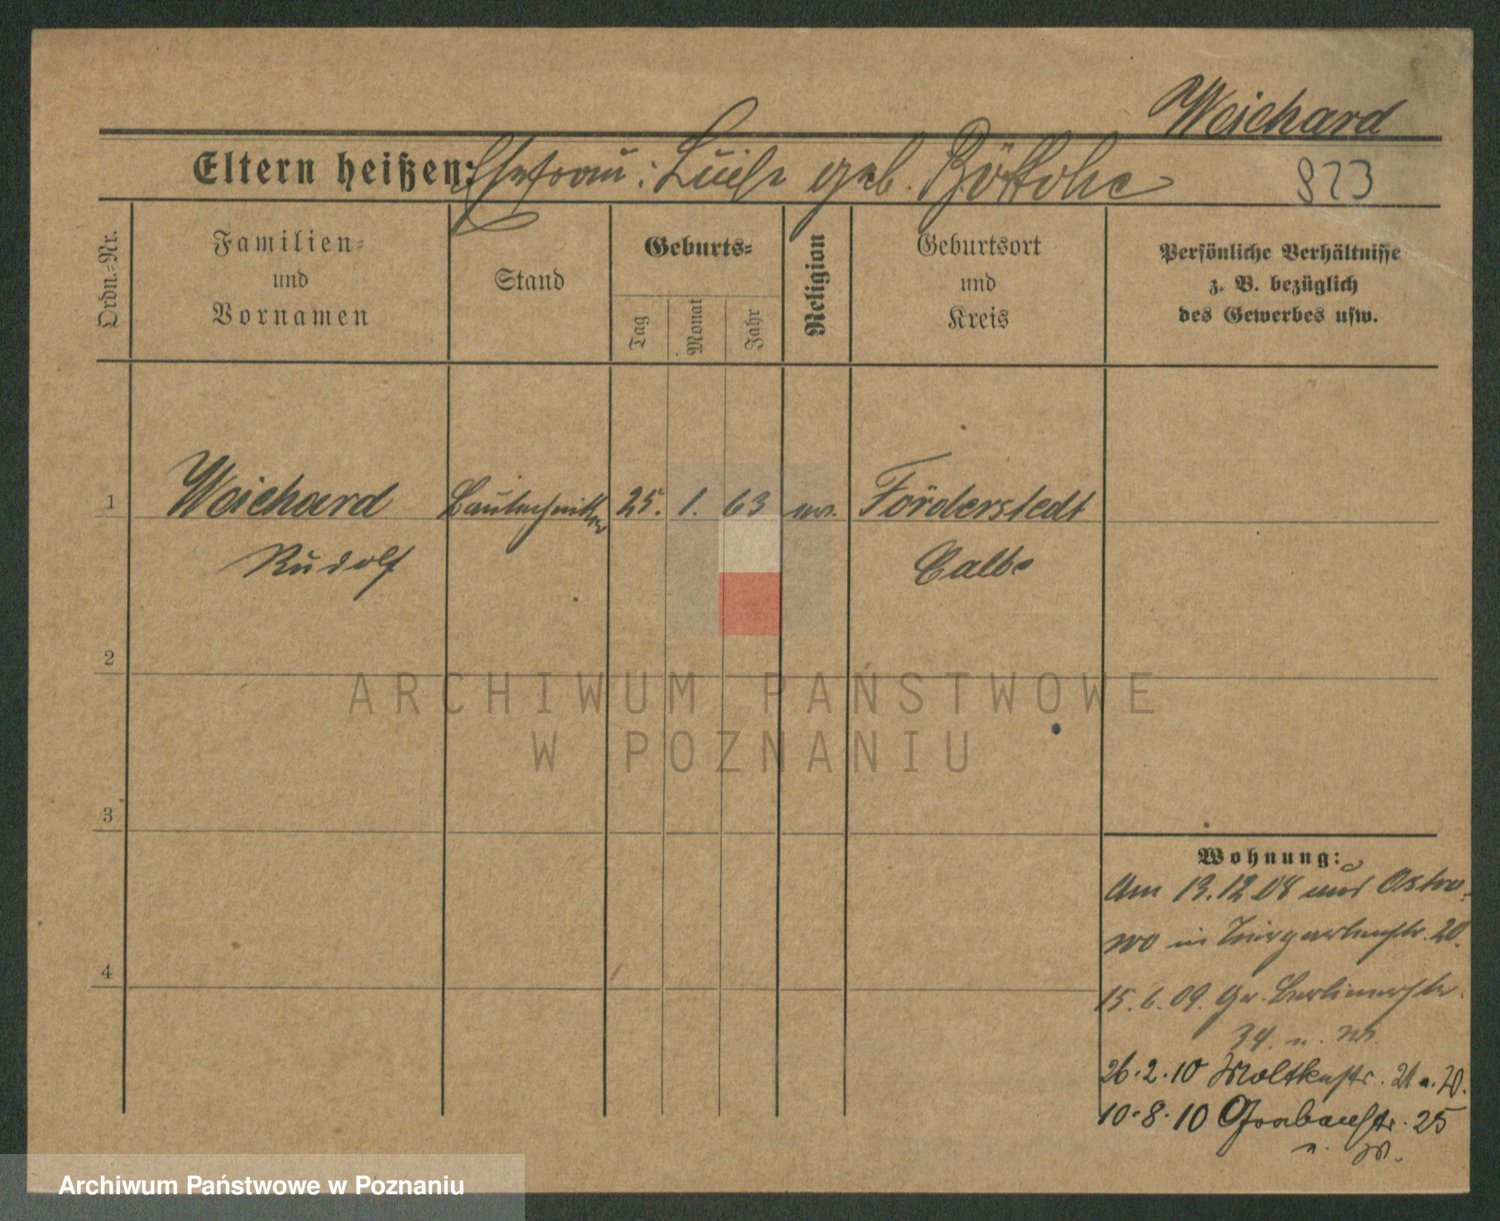 Weichard
Eltern heißen: Ehefrau: Luise geb. Böttche
823
Ordn.=Nr.
Familien=
und
Vornamen
Stand
Geburts=
Tag
Monat
Jahr
Religion
Geburtsort
und
Kreis
Persönliche Verhältnisse
z. B. bezüglich
des Gewerbes usw.
1 Weichard Bautechniker 25. 1. 63 ev. Förderstedt
Rudolf Calbe
2
ARCHIWUM PAŃSTWOWE
W POZNANIU
3
Wohnung:
Am 13.12.08 aus Ostro=
wo in Tiergartenstr. 20.
15.6.09. Gr. Berlinerstr.
34. u. W.
26.2.10 Moltkestr. 21 u. W.
10.8.10 Grabenstr. 25
u. W.
4
Archiwum Państwowe w Poznaniu